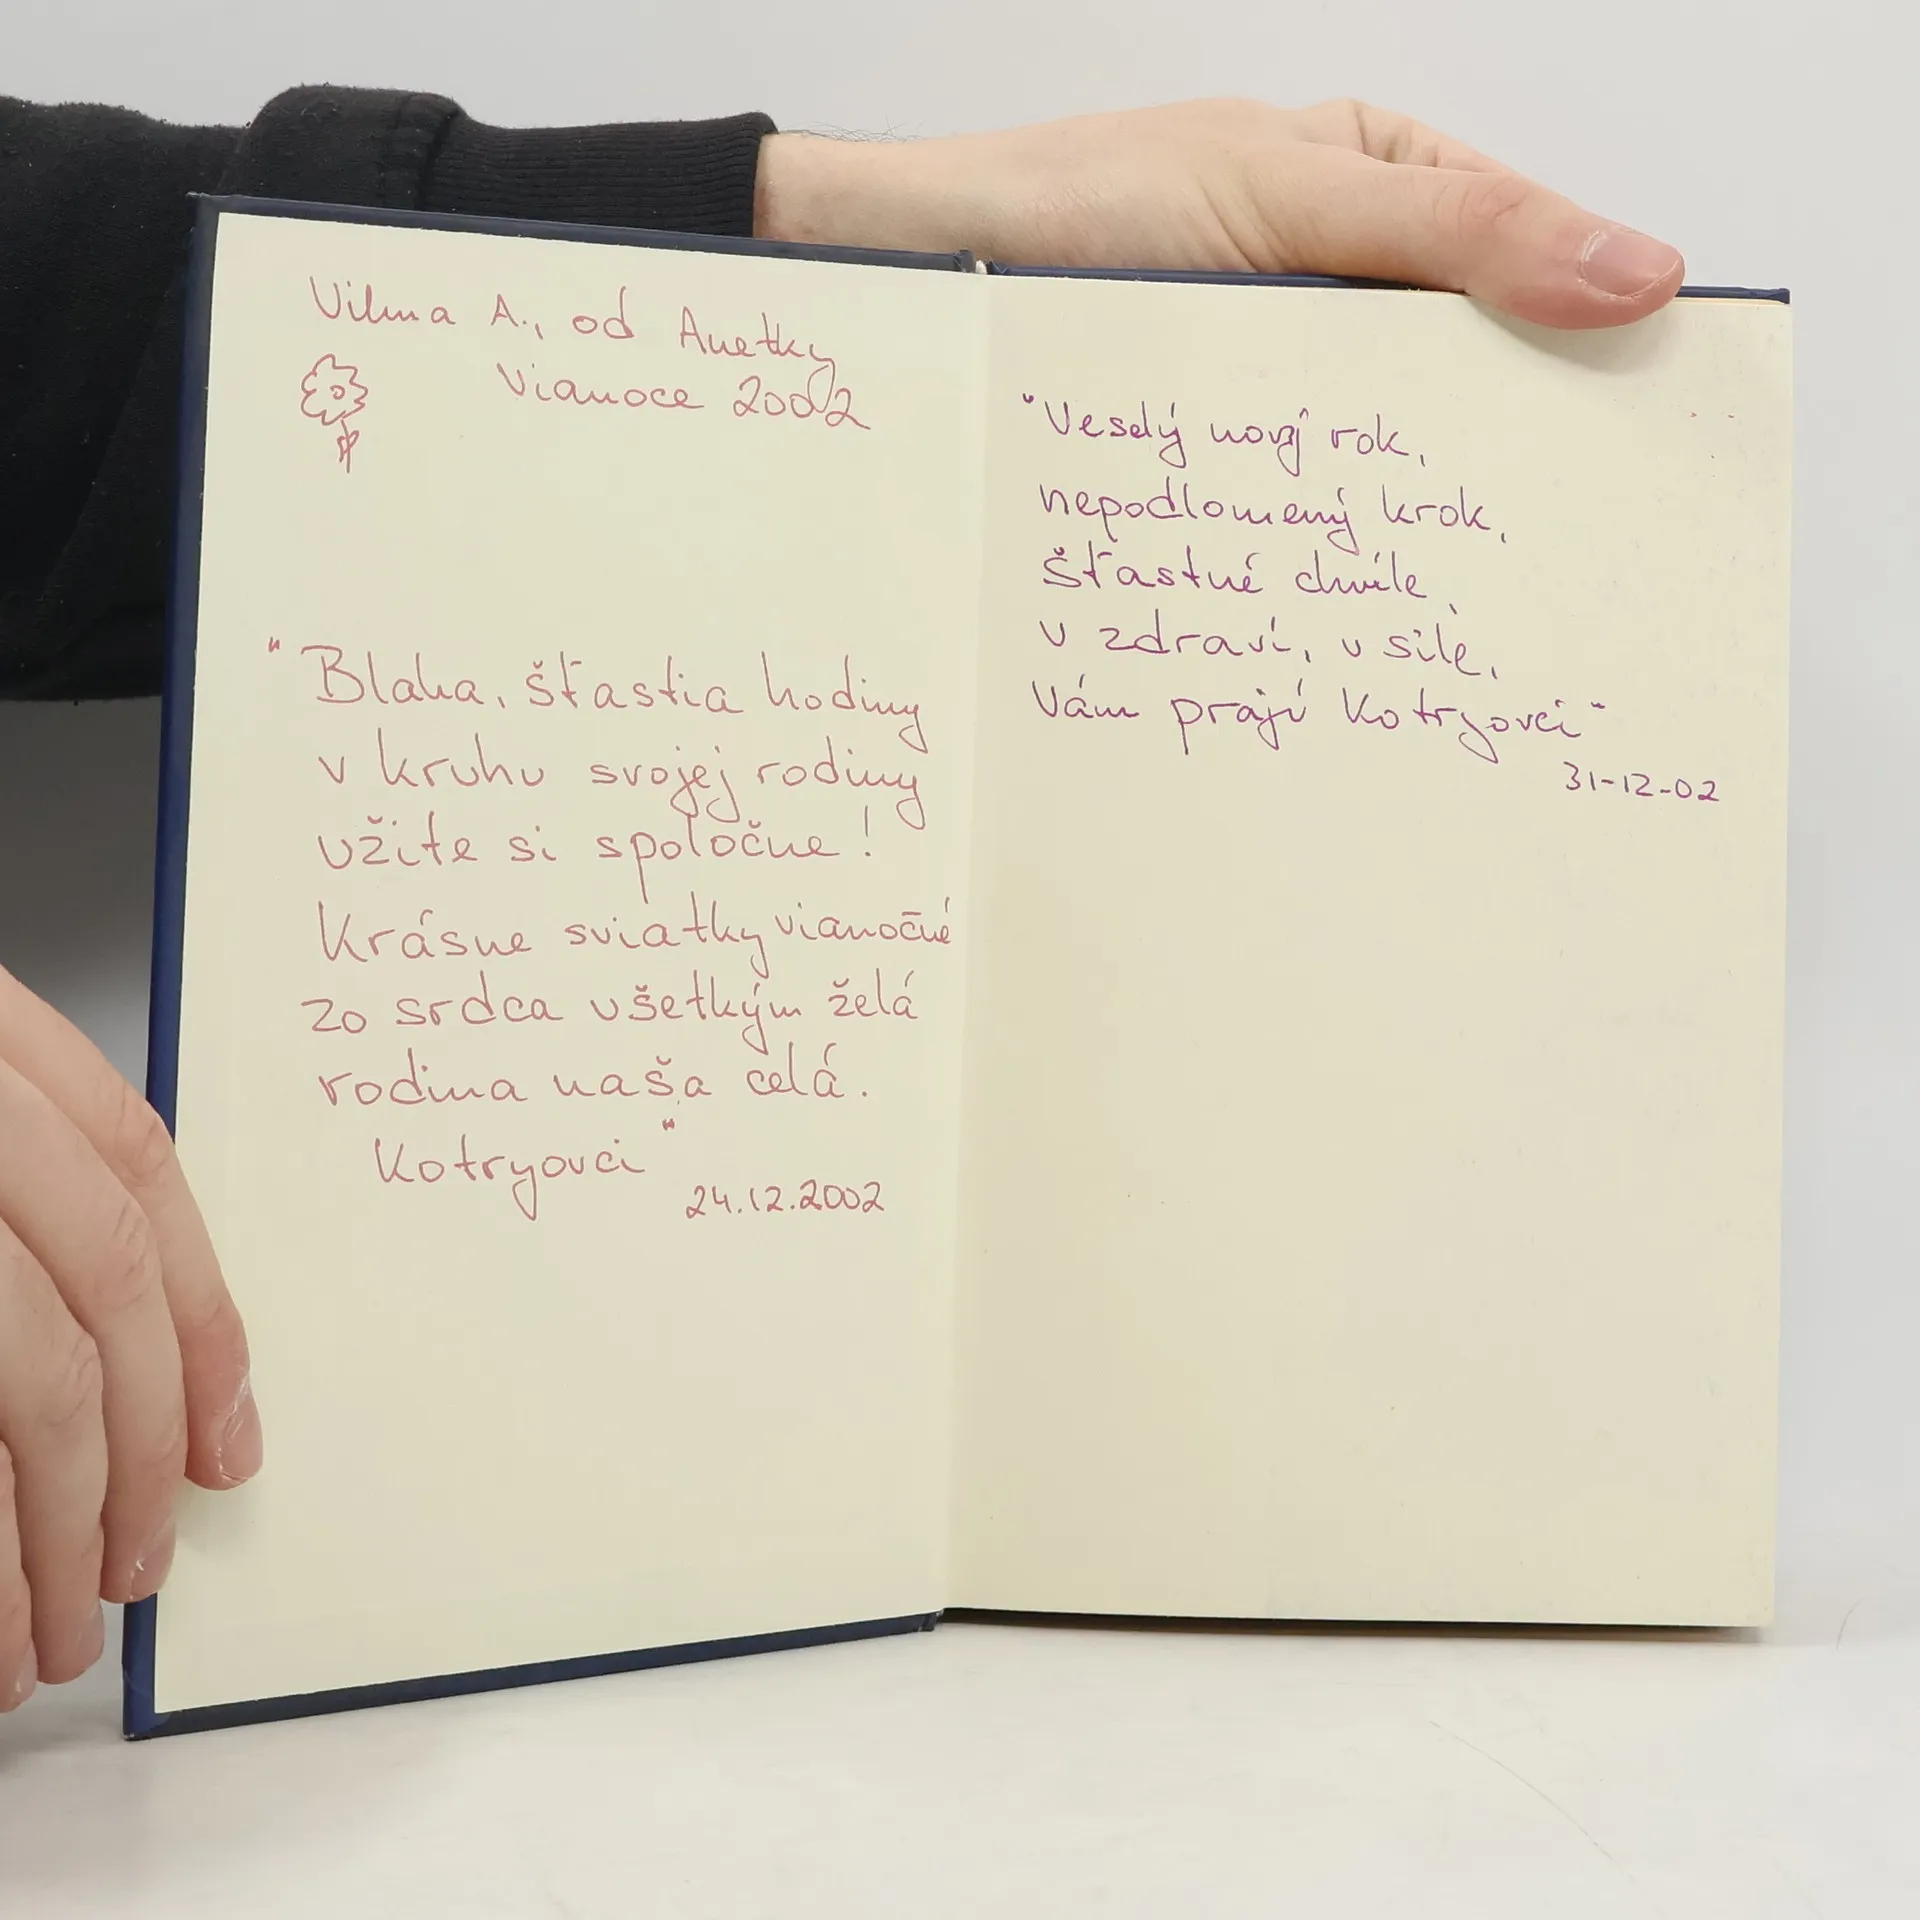 Vilma A., od Anetky
Vianoce 2002
"Blaha, šťastia hodiny
v kruhu svojej rodiny
užite si spoločne!
Krásne sviatky vianočné
zo srdca všetkým želá
rodina naša celá.
Kotryovci"
24.12.2002
"Veselý nový rok,
nepodlomený krok,
šťastné chvíle,
v zdraví, v sile,
Vám prajú Kotryovci"
31-12-02